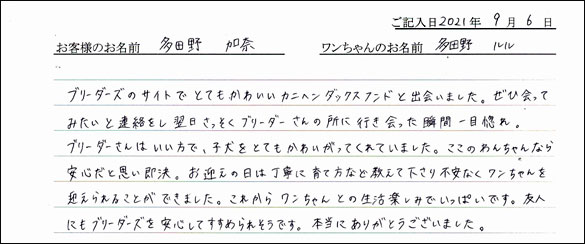 ご記入日2021年 9月 6日
お客様のお名前 多田野 加奈 ワンちゃんのお名前 多田野 ルル
ブリーダーズのサイトでとてもかわいいカニヘンダックスフンドと出会いました。ぜひ会って
みたいと連絡をし翌日さっそくブリーダーさんの所に行き会った瞬間一目惚れ。
ブリーダーさんはいい方で、子犬をとてもかわいがってくれていました。ここのわんちゃんなら
安心だと思い即決。お迎えの日は丁寧に育て方など教えて下さり不安なくワンちゃんを
迎えられることができました。これからワンちゃんとの生活楽しみでいっぱいです。友人
にもブリーダーズを安心してすすめられそうです。本当にありがとうございました。